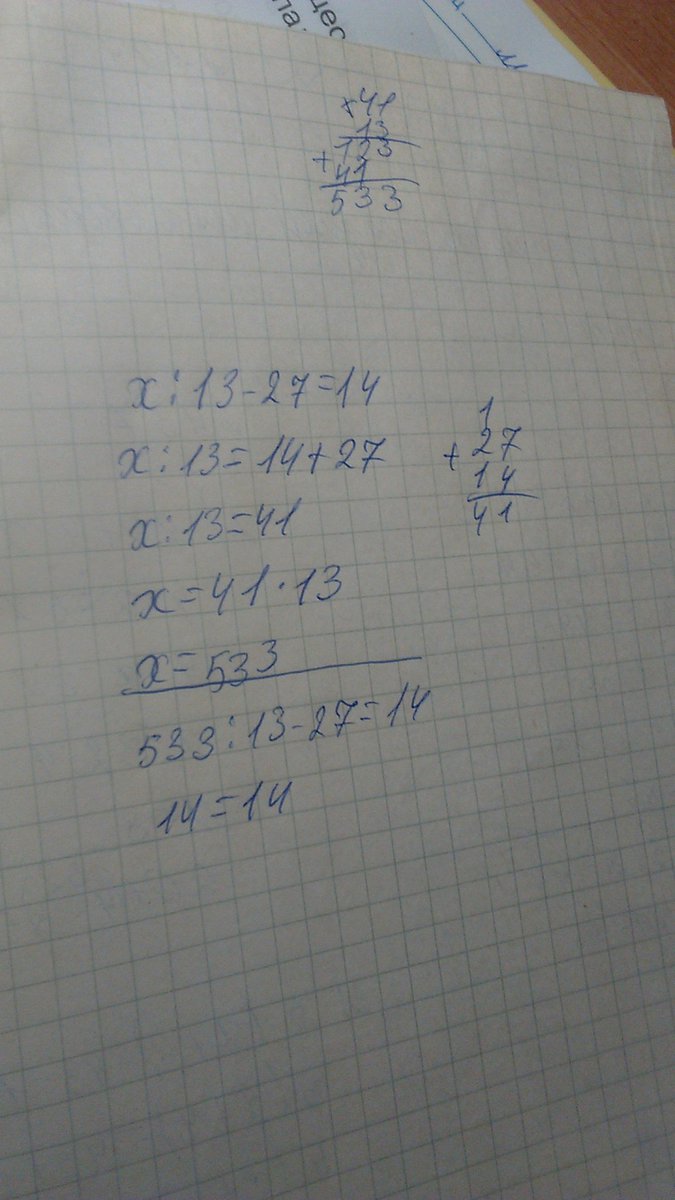 ×41
13
123
+
41
533
x:13-27=14
x:13=14+27
x:13=41
x=41·13
x=533
533:13-27=14
14=14
1
27
+
14
41